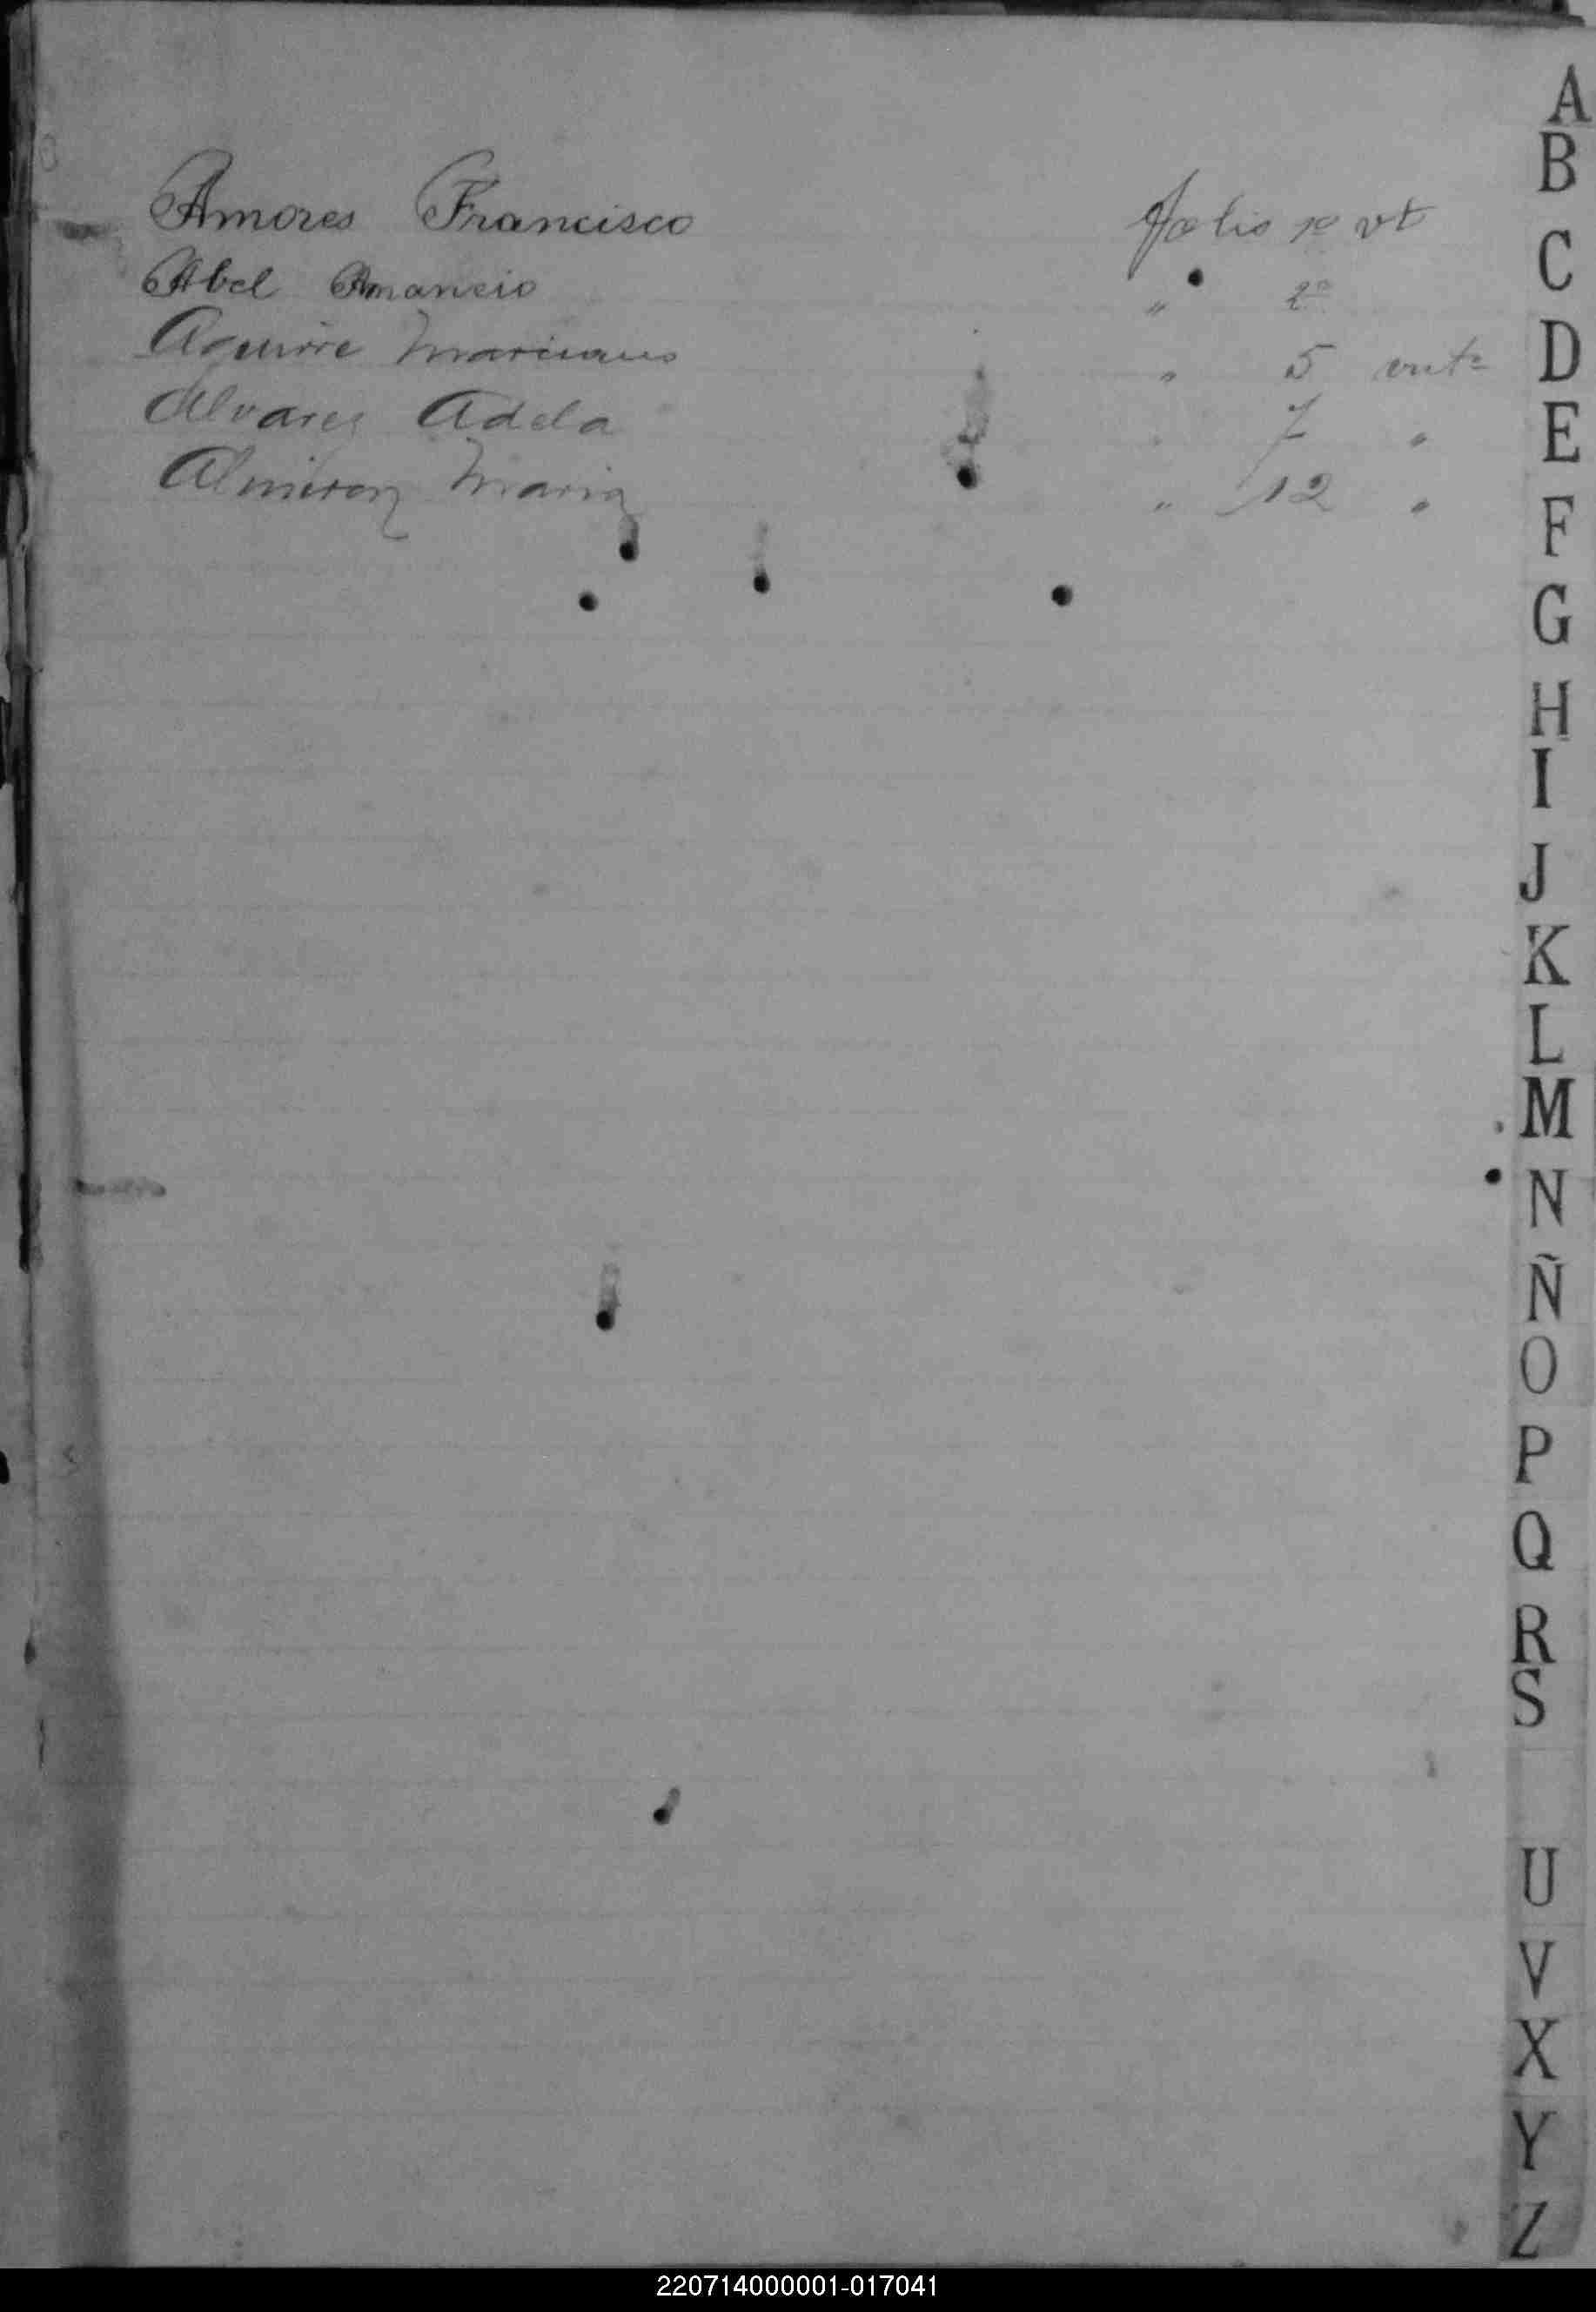 Amores Francisco folio 1º vt
Abel Amancio " 2º
Aguirre Marciano " 5 vuta
Alvarez Adela " 7 "
Almiron Maria " 12 "
A
B
C
D
E
F
G
H
I
J
K
L
M
N
Ñ
O
P
Q
R
S
U
V
X
Y
Z
220714000001-017041